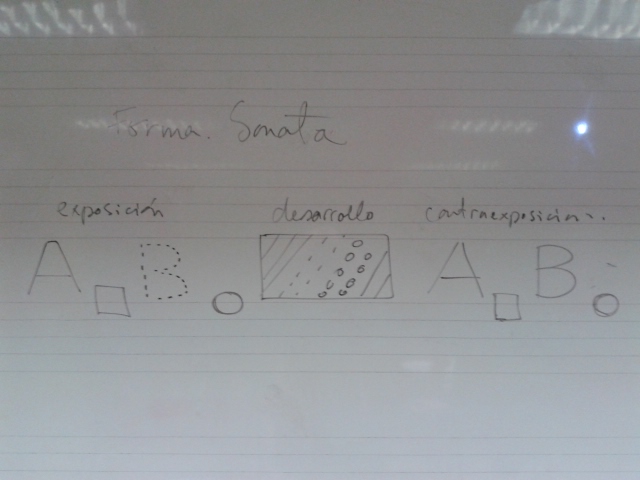 Forma. Sonata
exposición desarrollo contraexposición..
A B A B